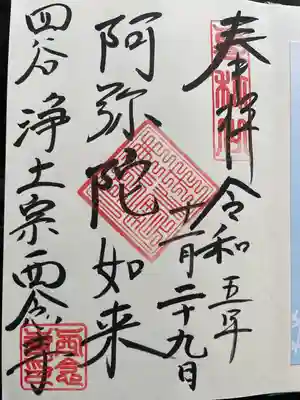 奉拝
令和五年
十一月二十九日
阿弥陀如来
四谷 浄土宗西念寺
西念